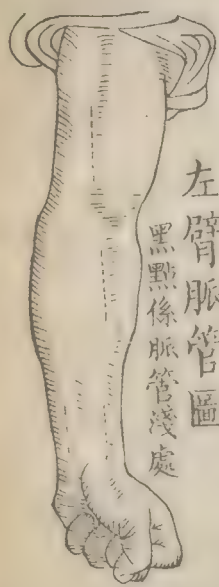 左臂脈管圖
黑點係脈管淺處